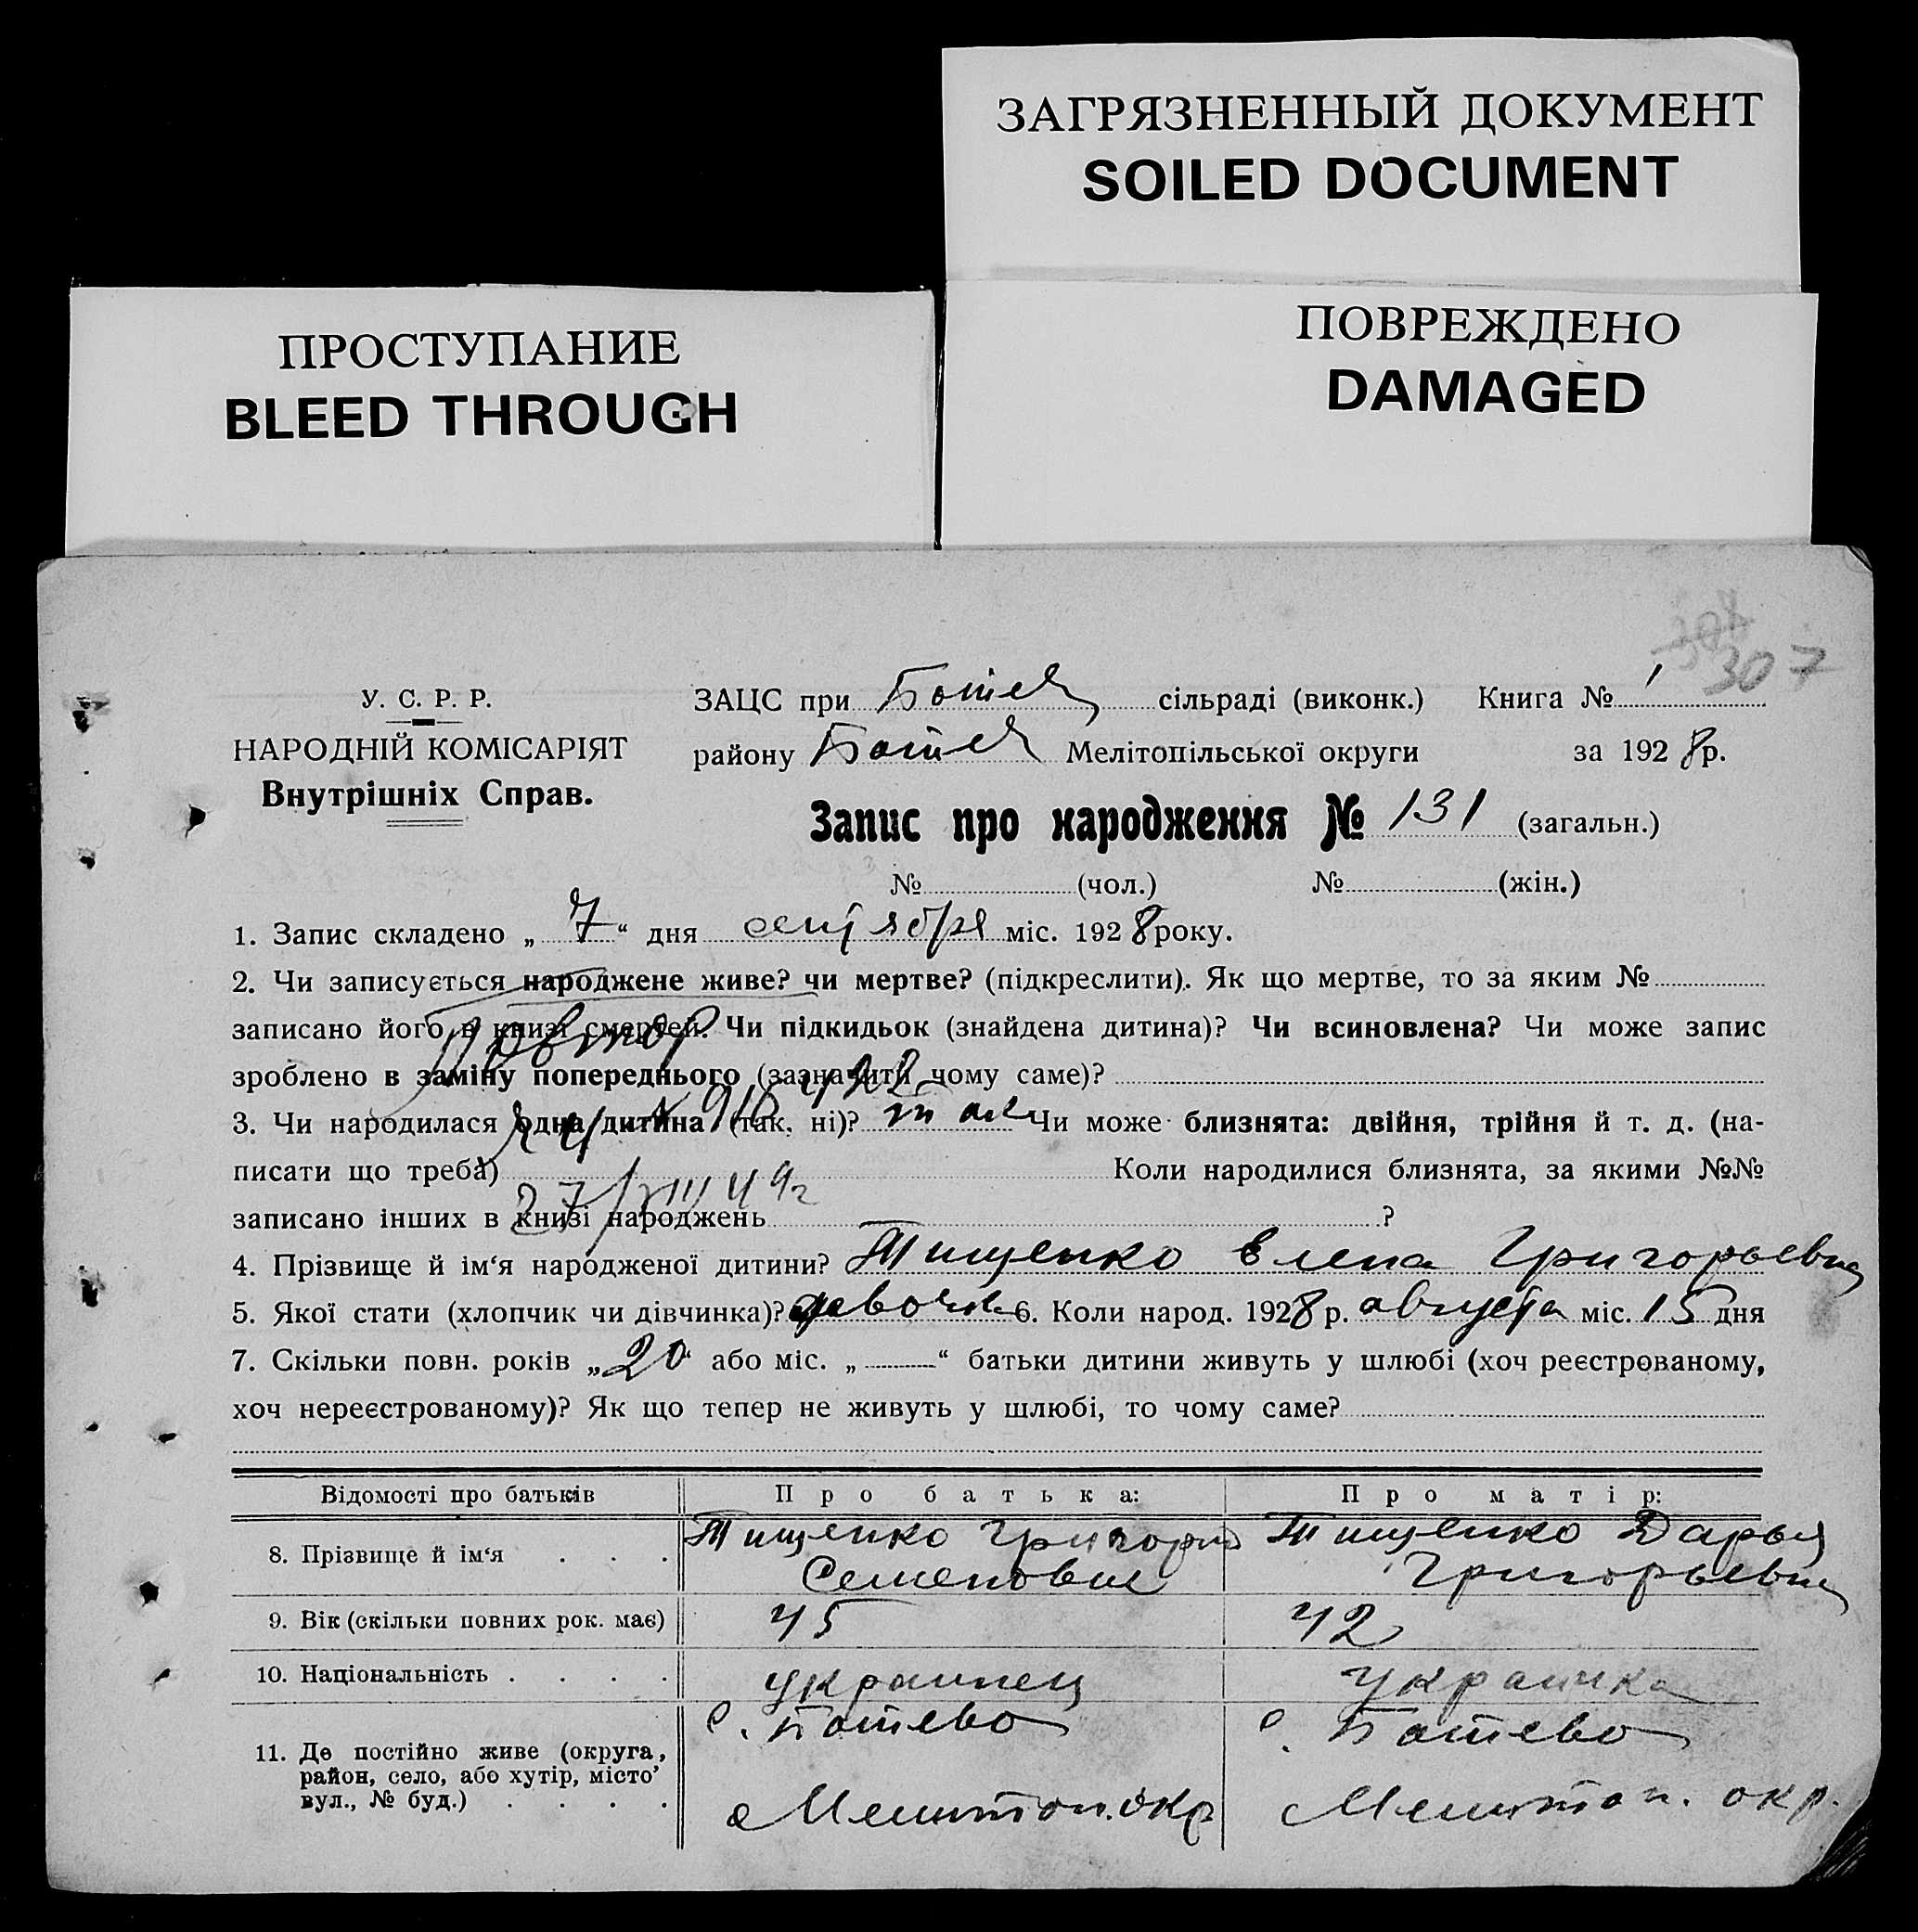 ЗАГРЯЗНЕННЫЙ ДОКУМЕНТ
SOILED DOCUMENT
ПРОСТУПАНИЕ
BLEED THROUGH
ПОВРЕЖДЕНО
DAMAGED
307
У. С. Р. Р.
НАРОДНІЙ КОМІСАРІЯТ
Внутрішніх Справ.
ЗАЦС при Ботієв сільраді (виконк.) Книга № 1
району Ботієв Мелітопільської округи за 1928 р.
Запис про народження № 131 (загальн.)
№ (чол.) № (жін.)
1. Запис складено „7“ дня сентября міс. 1928 року.
2. Чи записується народжене живе? чи мертве? (підкреслити). Як що мертве, то за яким №
записано його в книзі смертей. Чи підкидьок (знайдена дитина)? Чи всиновлена? Чи може запис
повтор
зроблено в заміну попереднього (зазначити чому саме)?
3. Чи народилася одна дитина (так, ні)? так Чи може близнята: двійня, трійня й т. д. (на-
писати що треба) Коли народилися близнята, за якими №№
27/VIII 49г
записано інших в книзі народжень ?
4. Прізвище й ім‘я народженої дитини? Тищенко Елена Григорьевна
5. Якої стати (хлопчик чи дівчинка)? девочка 6. Коли народ. 1928 р. августа міс. 15 дня
7. Скільки повн. років „20“ або міс. „ “ батьки дитини живуть у шлюбі (хоч реєстрованому,
хоч нереєстрованому)? Як що тепер не живуть у шлюбі, то чому саме?
Відомості про батьків Про батька: Про матір:
8. Прізвище й ім‘я . . . Тищенко Григорий Семенович Тищенко Дарья Григорьевна
9. Вік (скільки повних рок. має) 45 42
10. Національність . . . . украинец украинка
11. Де постійно живе (округа, район, село, або хутір, місто’ вул., № буд.) . . . . с. Ботиево Мелитоп. окр с. Ботиево Мелитоп. окр.